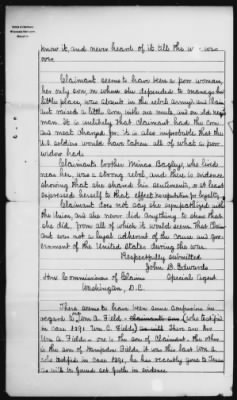 know it, and never heard of it till this
Claimant seems to have been a poor woman,
her only son, on whom she depended to manage her
little place, was absent in the rebel army and Claim-
ant raised a little corn with one mule and an old negro
man. It is unlikely that Claimant had the Corn
and meat charged for. It is also improbable that the
U.S. soldiers would have taken all of what a poor
widow had.
Claimants brother Minas Bagley, who lived
near her, was a strong rebel, and there is evidence
showing that she shared his sentiments, or at least
expressed herself to that effect
Claimant does not say she sympathized with
the Union, and she never did anything to show that
she did, from all of which it would seem that Claim-
ant was not a loyal adherent of the cause and gov-
ernment of the United States during the war.
Respectfully submitted
John D. Edwards
Hon. Commissioners of Claims Special Agent
Washington, D.C.
There seems to have been some confusion in
regard to Wm A. Field (who testifies
in case 1291 Wm C. Fields) There are two
Wm A. Fields - one is the son of Claimant - the other
is the son of Fields it was this last Wm A.
who testifies in case 1291, he has recently gone to Texas
as will be found set forth in evidence.